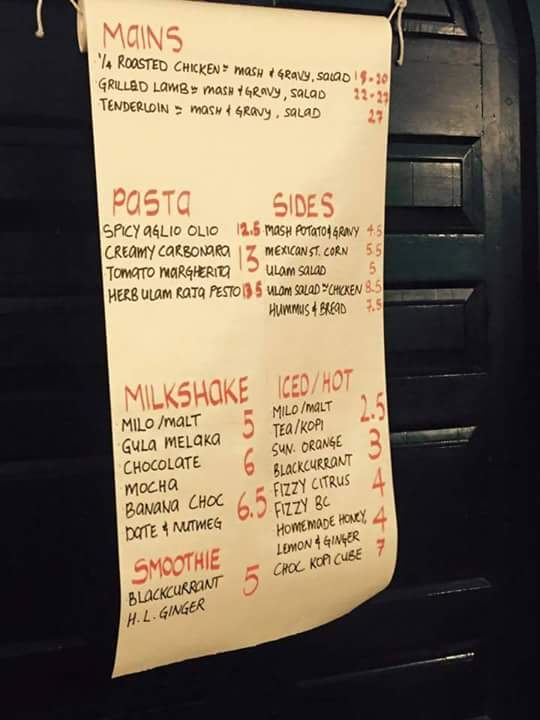 MAINS
1/4 ROASTED CHICKEN = MASH & GRAVY, SALAD 18-20
GRILLED LAMB = MASH & GRAVY, SALAD 22-27
TENDERLOIN = MASH & GRAVY, SALAD 27
PASTA
SPICY AGLIO OLIO 12.5
CREAMY CARBONARA 13
TOMATO MARGHERITA
HERB ULAM RAJA PESTO 13.5
SIDES
MASH POTATO & GRAVY 4.5
MEXICAN ST. CORN 5.5
ULAM SALAD 5
ULAM SALAD = CHICKEN 8.5
HUMMUS & BREAD 7.5
MILKSHAKE
MILO/MALT 5
GULA MELAKA
CHOCOLATE 6
MOCHA
BANANA CHOC 6.5
DATE & NUTMEG
SMOOTHIE
BLACKCURRANT 5
H.L. GINGER
ICED/HOT
MILO/MALT 2.5
TEA/KOPI
SUN. ORANGE 3
BLACKCURRANT
FIZZY CITRUS 4
FIZZY BC
HOMEMADE HONEY, 4
LEMON & GINGER
CHOC KOPI CUBE 7